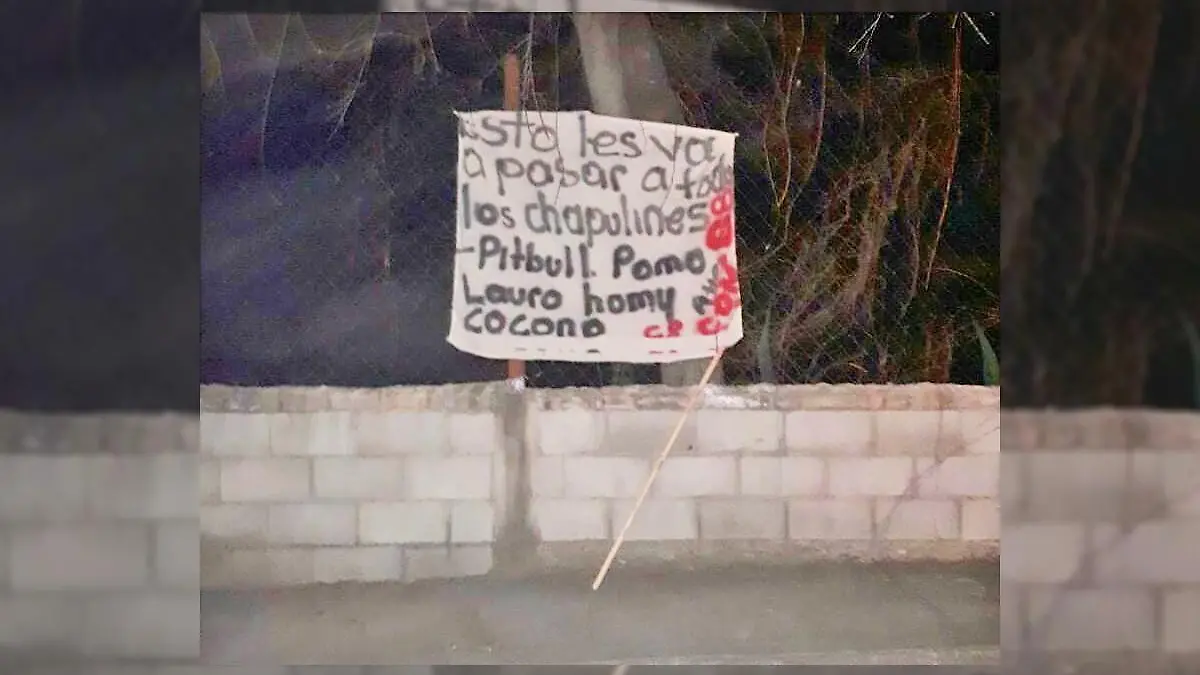 Esto les va
a pasar a todo
los chapulines
-Pitbull. Pomo
Lauro homy
cocono